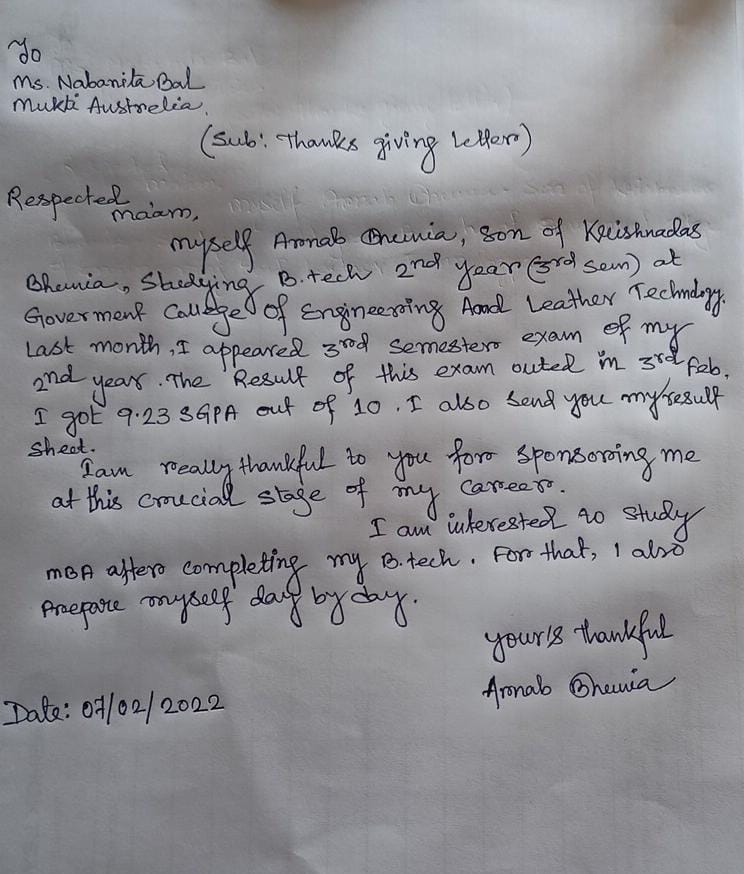 To
Ms. Nabanita Bal
Mukti Australia.
(Sub: Thanks giving Letter)
Respected
ma'am,
myself Arnab Bhunia, son of Krishnadas
Bhunia, Studying B.tech 2nd year (3rd sem) at
Goverment College Of Engineering And Leather Technology.
Last month, I appeared 3rd semester exam of my
2nd year. The Result of this exam outed in 3rd Feb.
I got 9.23 SGPA out of 10. I also send you my result
sheet.
I am really thankful to you for sponsoring me
at this crucial stage of my career.
I am interested to study
MBA after completing my B.tech. For that, I also
Prepare myself day by day.
your's thankful
Arnab Bhunia
Date: 07/02/2022